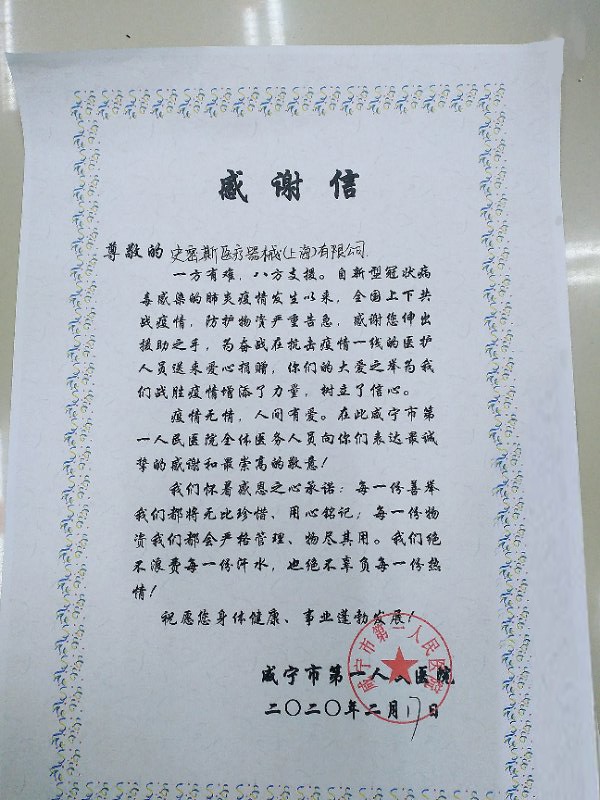 感谢信
尊敬的 史密斯医疗器械(上海)有限公司
一方有难，八方支援。自新型冠状病
毒感染的肺炎疫情发生以来，全国上下共
战疫情，防护物资严重告急，感谢您伸出
援助之手，为奋战在抗击疫情一线的医护
人员送来爱心捐赠，你们的大爱之举为我
们战胜疫情增添了力量，树立了信心。
疫情无情，人间有爱。在此咸宁市第
一人民医院全体医务人员向你们表达最诚
挚的感谢和最崇高的敬意！
我们怀着感恩之心承诺：每一份善举
我们都将无比珍惜、用心铭记；每一份物
资我们都会严格管理、物尽其用。我们绝
不浪费每一份汗水，也绝不辜负每一份热
情！
祝愿您身体健康、事业蓬勃发展！
咸宁市第一人民医院
二〇二〇年二月17日
咸宁市第一人民医院